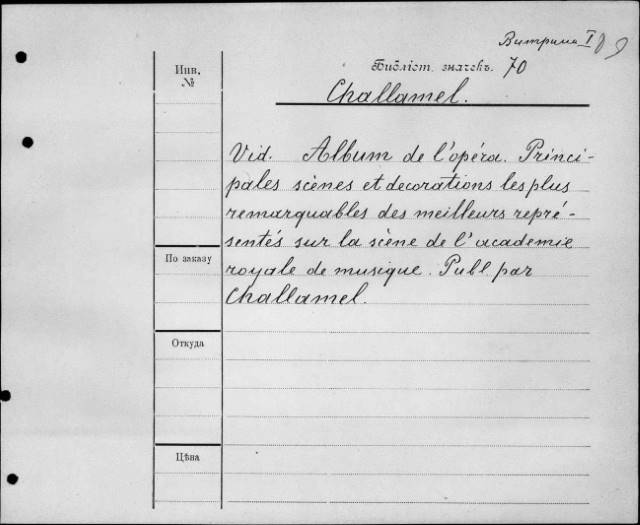 Витрина I
Библіот. значекъ. 70
Challamel.
Инв.
№
Vid. Album de l'opéra. Princi-
pales scènes et decorations les plus
remarquables des meilleurs repré-
sentés sur la scène de l'academie
royale de musique. Publ. par
Challamel.
По заказу
Откуда
Цѣна